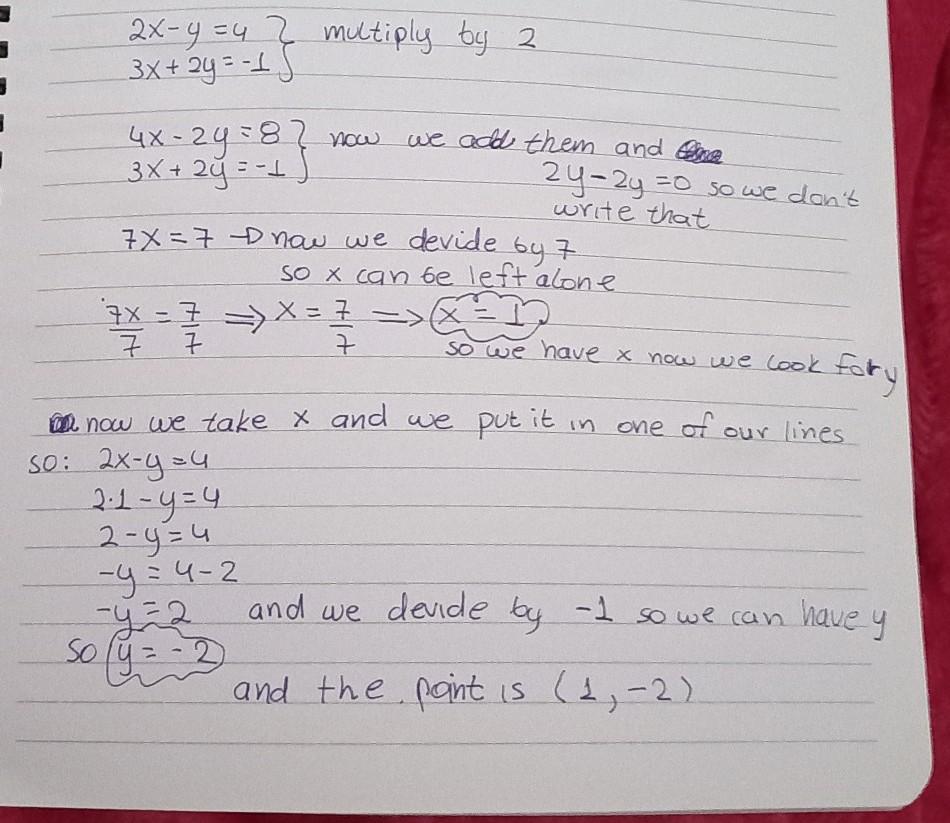 2x-y=4 } multiply by 2
3x+2y=-1
4x-2y=8 } now we add them and
3x+2y=-1
2y-2y=0 so we don't
write that
7x=7 → now we devide by 7
so x can be left alone
7x/7 = 7/7 ⇒ x = 7/7 ⇒ x=1
so we have x now we look for y
now we take x and we put it in one of our lines
so: 2x-y=4
2·1-y=4
2-y=4
-y=4-2
-y=2 and we devide by -1 so we can have y
so y=-2
and the point is (1,-2)